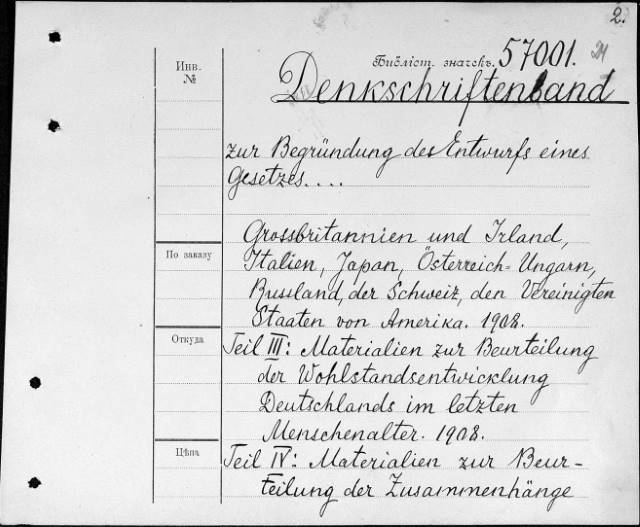 2.
Библіот. значекъ. 57001. 24
Инв.
№
Denkschriftenband
zur Begründung des Entwurfs eines
Gesetzes....
Grossbritannien und Irland,
По заказу
Italien, Japan, Österreich-Ungarn,
Russland, der Schweiz, den Vereinigten
Staaten von Amerika. 1908.
Откуда
Teil III: Materialien zur Beurteilung
der Wohlstandsentwicklung
Deutschlands im letzten
Menschenalter. 1908.
Цѣна
Teil IV: Materialien zur Beur-
teilung der Zusammenhänge